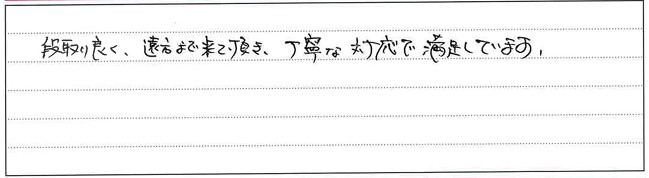 段取り良く、遠方まで来て頂き、丁寧な対応で満足しています。